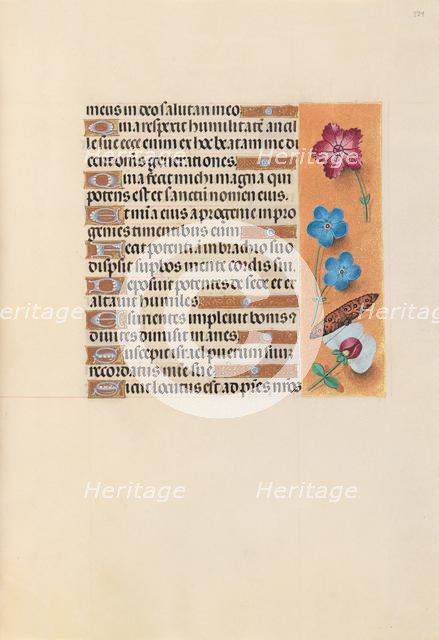 meus in deo salutari meo
Quia respexit humilitatē ancil
le sue ecce enim ex hoc beatam me di
cent om̄s generationes.
Quia fecit michi magna qui
potens est et sanctū nomen eius.
Et mīa eius a progenie in pro
genies timentibus eum
Fecit potentiā in brachio suo
dispsit supbos mente cordis sui.
Deposuit potentes de sede et ex
altavit humiles
Esurientes implevit bonis ⁊
divites dimisit inanes.
Suscepit isrāel puerum suū
recordatus mīe sue
Sicut locutus est ad pr̄es nr̄os
Heritage
Heritage
Heritage
Heritage
Heritage
Heritage